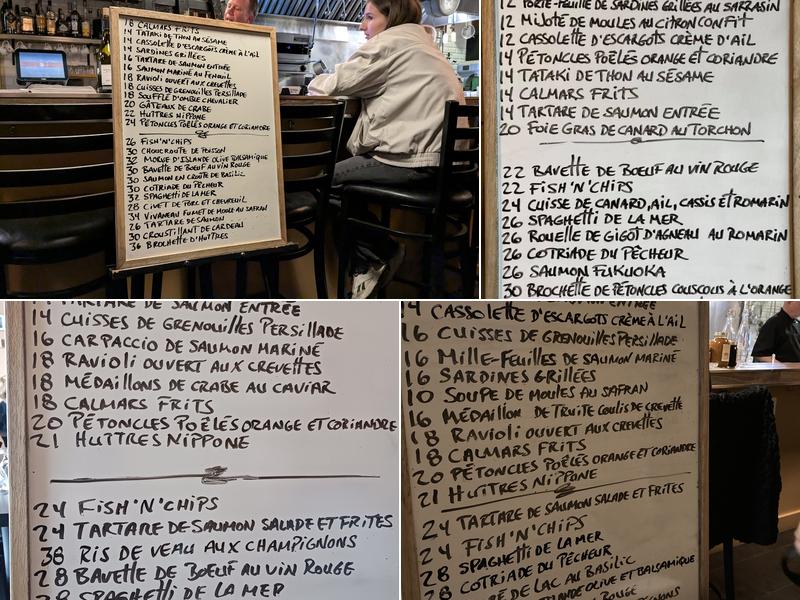 18 CALMARS FRITS
14 TATAKI DE THON AU SÉSAME
14 CASSOLETTE D'ESCARGOTS CRÈME À L'AIL
14 SARDINES GRILLÉES
16 TARTARE DE SAUMON ENTRÉE
16 SAUMON MARINÉ AU FENOUIL
18 RAVIOLI OUVERT AUX CREVETTES
18 CUISSES DE GRENOUILLES PERSILLADE
18 SOUFFLÉ D'OMBLE CHEVALIER
20 GÂTEAUX DE CRABE
22 HUITRES NIPPONE
24 PÉTONCLES POÊLÉS ORANGE ET CORIANDRE
26 FISH'N'CHIPS
30 CHOUCROUTE DE POISSON
32 MORUE D'ISLANDE OLIVE BALSAMIQUE
30 BAVETTE DE BOEUF AU VIN ROUGE
30 SAUMON EN CROÛTE DE BASILIC
30 COTRIADE DU PÊCHEUR
32 SPAGHETTI DE LA MER
28 CIVET DE PORC ET CHEVREUIL
34 VIVANEAU FUMET DE MOULE AU SAFRAN
26 TARTARE DE SAUMON
30 CROUSTILLANT DE CARDEAU
36 BROCHETTE D'HUÎTRES
12 PORTE-FEUILLE DE SARDINES GRILLÉES AU SARRASIN
12 MIJOTÉ DE MOULES AU CITRON CONFIT
12 CASSOLETTE D'ESCARGOTS CRÈME D'AIL
14 PÉTONCLES POÊLÉS ORANGE ET CORIANDRE
14 TATAKI DE THON AU SÉSAME
14 CALMARS FRITS
14 TARTARE DE SAUMON ENTRÉE
20 FOIE GRAS DE CANARD AU TORCHON
22 BAVETTE DE BOEUF AU VIN ROUGE
22 FISH'N'CHIPS
24 CUISSE DE CANARD, AIL, CASSIS ET ROMARIN
26 SPAGHETTI DE LA MER
26 ROUELLE DE GIGOT D'AGNEAU AU ROMARIN
26 COTRIADE DU PÊCHEUR
26 SAUMON FUKUOKA
30 BROCHETTE DE PÉTONCLES COUSCOUS À L'ORANGE
TARTARE DE SAUMON ENTRÉE
14 CUISSES DE GRENOUILLES PERSILLADE
16 CARPACCIO DE SAUMON MARINÉ
18 RAVIOLI OUVERT AUX CREVETTES
18 MÉDAILLONS DE CRABE AU CAVIAR
18 CALMARS FRITS
20 PÉTONCLES POÊLÉS ORANGE ET CORIANDRE
21 HUITRES NIPPONE
24 FISH'N'CHIPS
24 TARTARE DE SAUMON SALADE ET FRITES
38 RIS DE VEAU AUX CHAMPIGNONS
28 BAVETTE DE BOEUF AU VIN ROUGE
28 SPAGHETTI DE LA MER
ENTRÉE
14 CASSOLETTE D'ESCARGOTS CRÈME À L'AIL
16 CUISSES DE GRENOUILLES PERSILLADE
16 MILLE-FEUILLES DE SAUMON MARINÉ
16 SARDINES GRILLÉES
10 SOUPE DE MOULES AU SAFRAN
16 MÉDAILLON DE TRUITE COULIS DE CREVETTE
18 RAVIOLI OUVERT AUX CREVETTES
18 CALMARS FRITS
20 PÉTONCLES POÊLÉS ORANGE ET CORIANDRE
21 HUITRES NIPPONE
24 TARTARE DE SAUMON SALADE ET FRITES
24 FISH'N'CHIPS
28 SPAGHETTI DE LA MER
28 COTRIADE DU PÊCHEUR
DE LAC AU BASILIC
OLIVE ET BALSAMIQUE
ROUGE